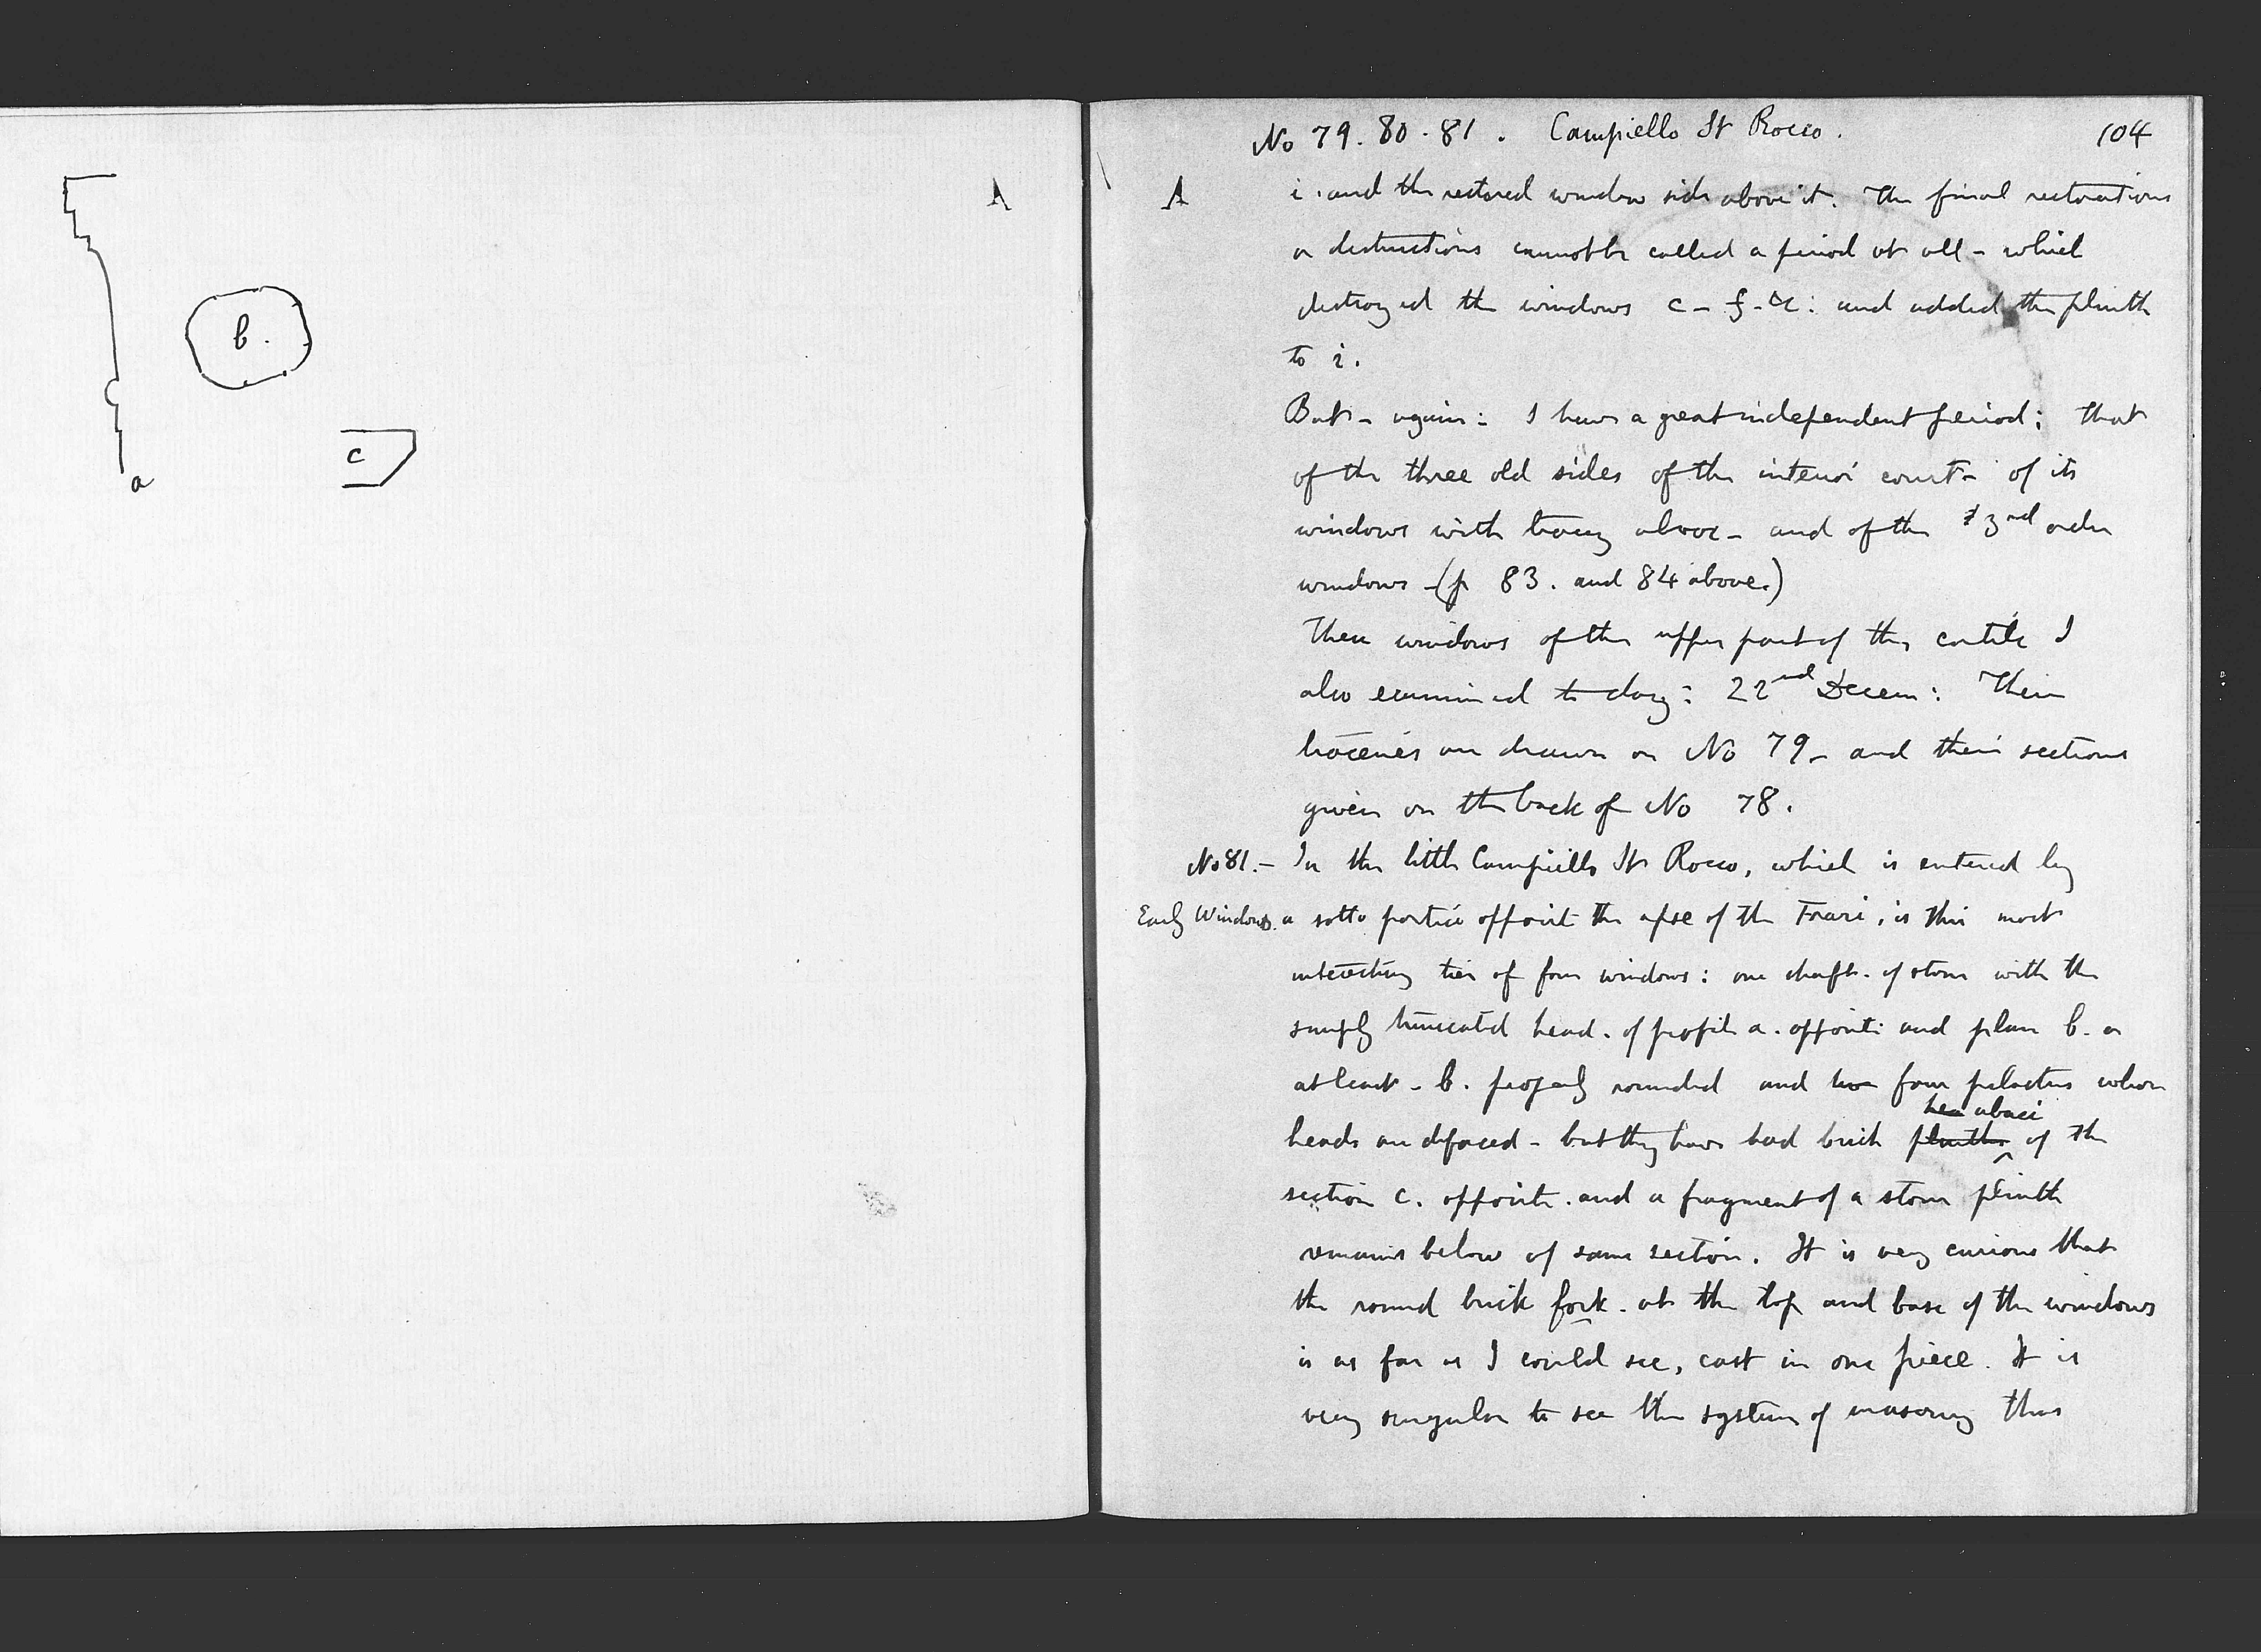 A
b.
c
a
No 79. 80. 81. Campiello St Rocco. 104
A
i. and the restored window side above it. The final restorations
or destructions cannot be called a period at all - which
destroyed the windows c - f - : and added the plinth
to i.
But - again: I have a great independent period: that
of the three old sides of the interior court - of its
windows with tracery above - and of the 3rd order
windows (p 83. and 84 above.)
These windows of the upper part of the cortile I
also examined to day: 22nd Decem: Their
traceries are drawn on No 79 - and their sections
given on the back of No 78.
No 81. - In the little Campiello St Rocco, which is entered by
Early Windows. a sotto portico opposite the apse of the Frari, is this most
interesting tier of four windows: one shaft. of stone with the
simply truncated head. of profile a. opposite and plan b. or
at least - b. properly rounded and two four pilasters whose
hea abaci
heads are defaced - but they have had brick plinths of the
section c. opposite. and a fragment of a stone plinth
remains below of same section. It is very curious that
the round brick fork. at the top and base of the windows
is as far as I could see, cast in one piece. It is
very singular to see the system of masonry thus